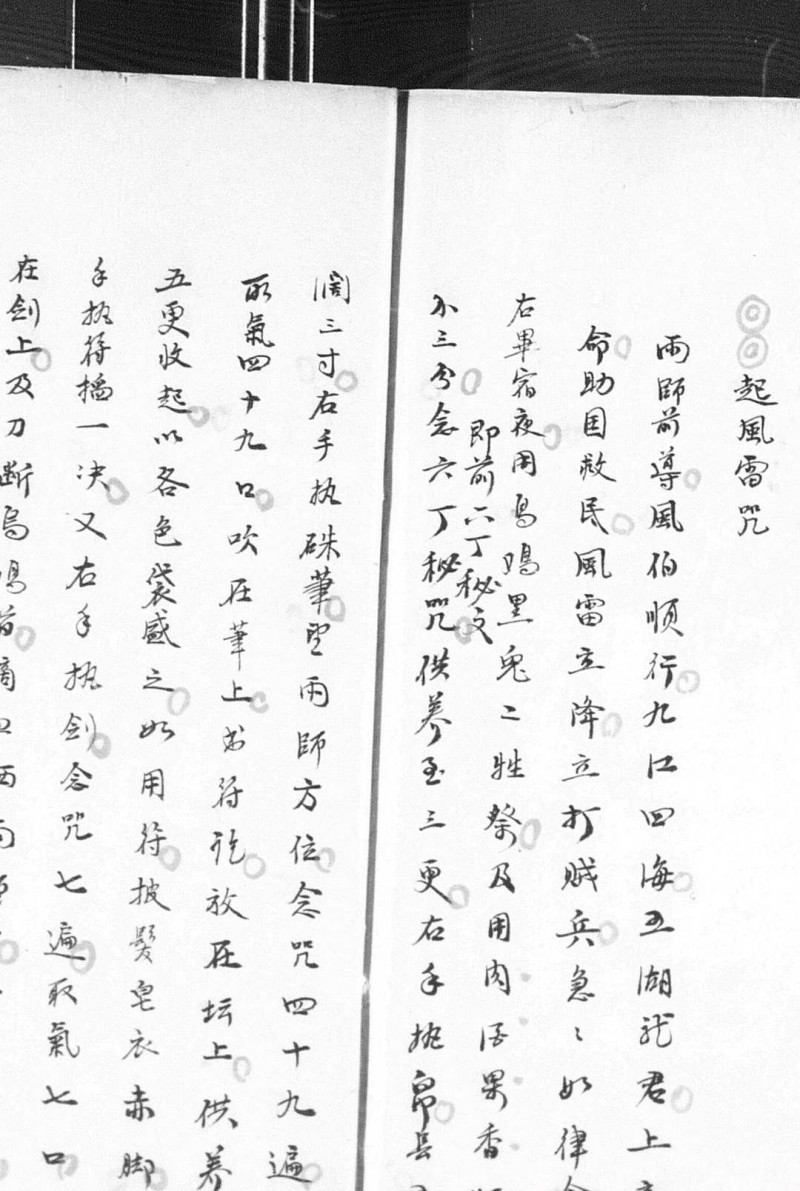 起風雷咒
雨師前導風伯順行九江四海五湖龍君上
命助国救民風雷立降立打賊兵急〻如律令
右畢宿夜用烏鳩黑兔二牲祭及用肉酒果香
即前六丁秘文
不三分念六丁秘咒供养至三更右手执帛長
闊三寸右手执硃筆望雨師方位念咒四十九遍
取氣四十九口吹在筆上书符訖放在坛上供养
五更收起以各色袋盛之如用符披髮皂衣赤脚
手执符擂一决又右手执剑念咒七遍取氣七口
在剑上及刀断烏鳩首滴血